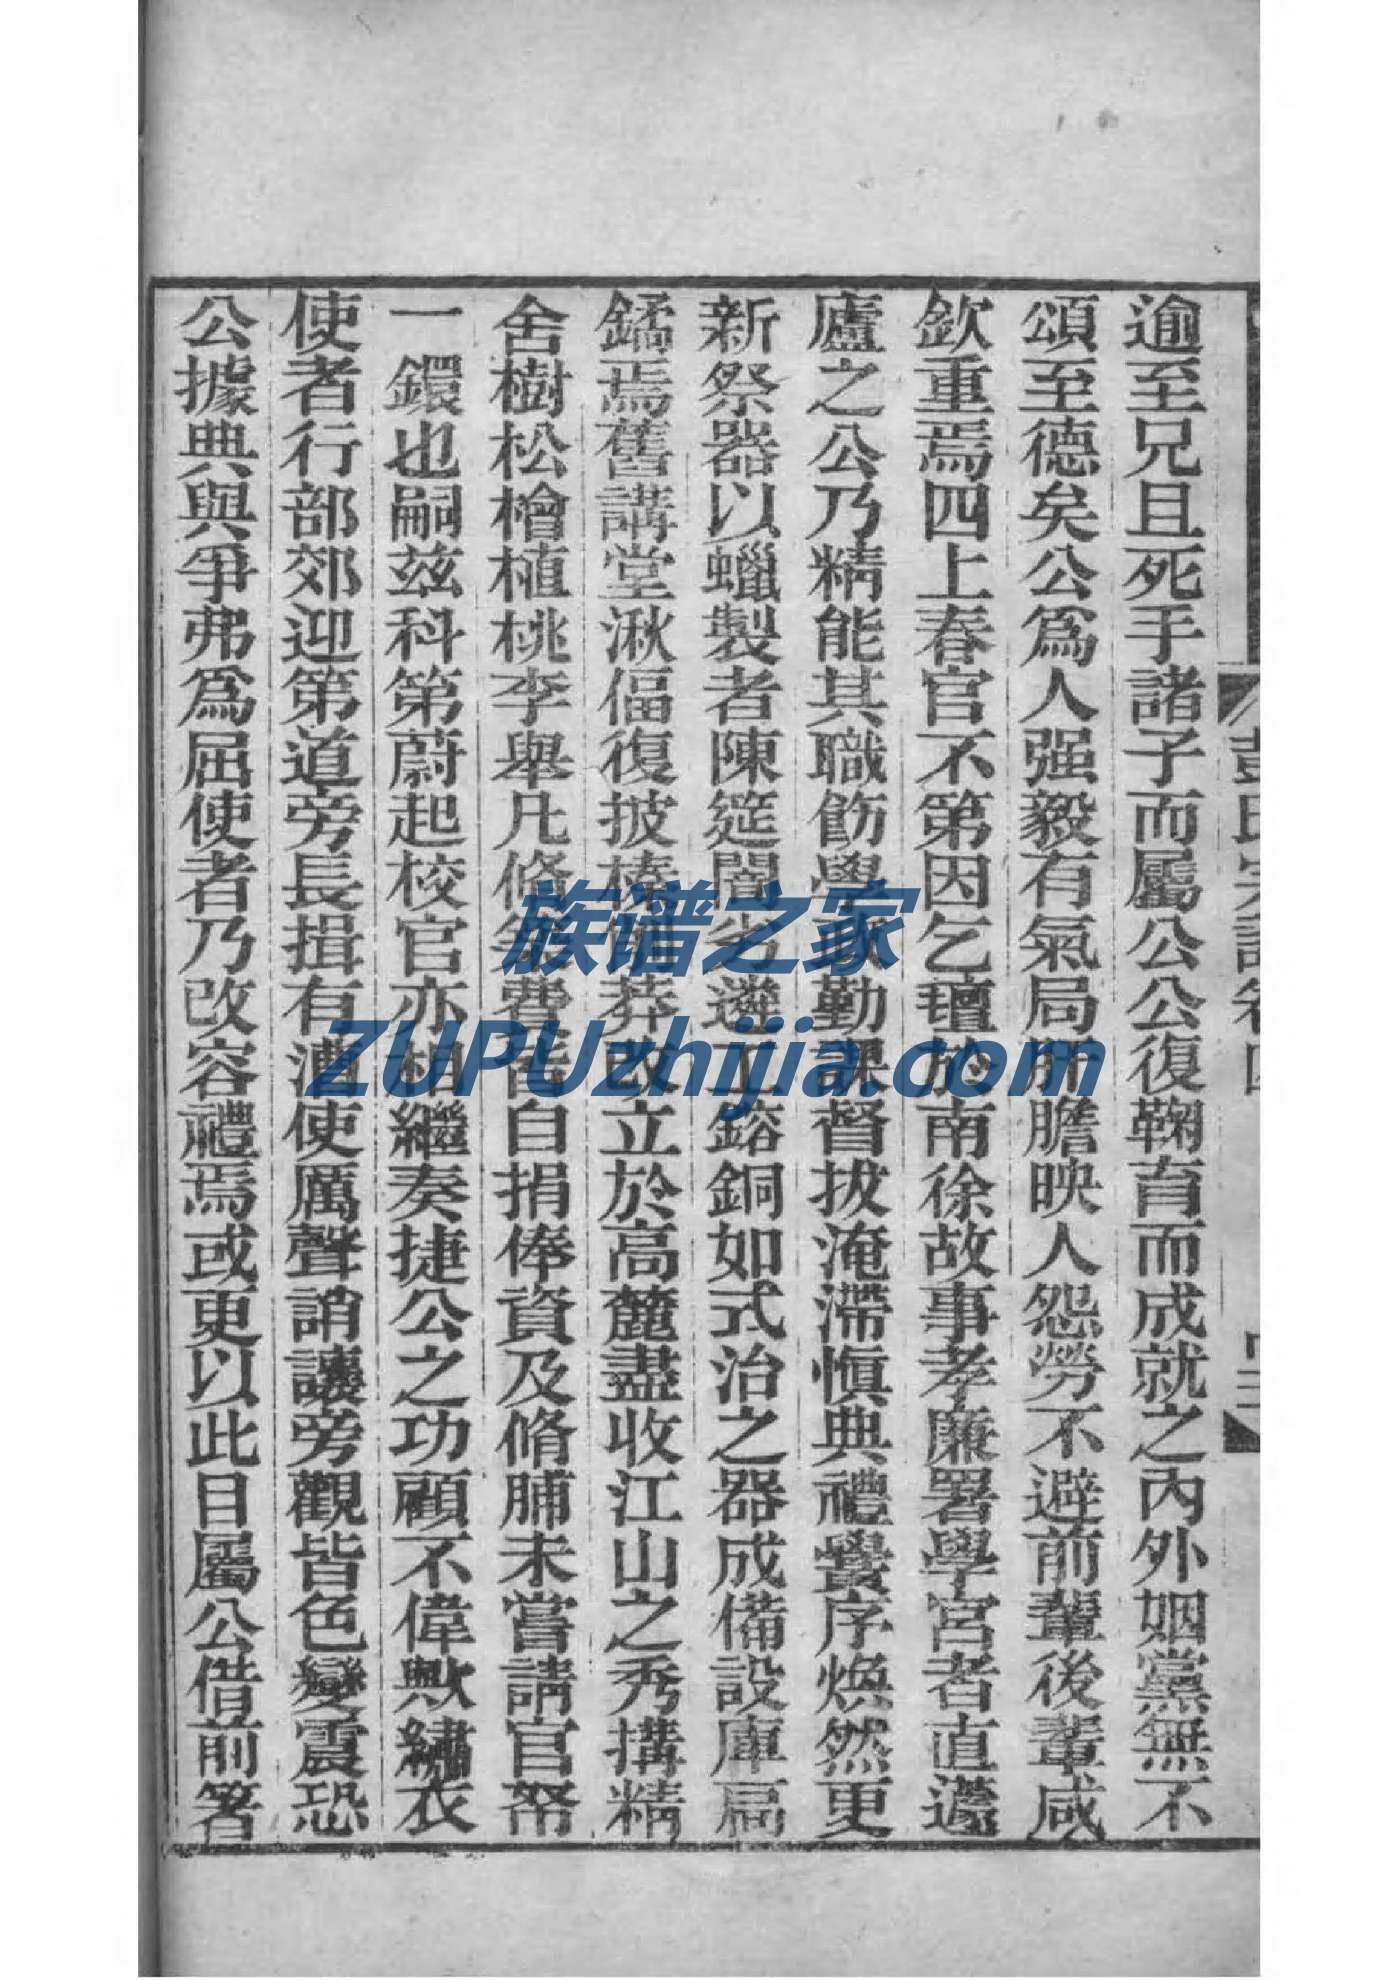 逾至兄且死手諸子而屬公公復鞠育而成就之內外姻黨無不
頌至德矣公爲人强毅有氣局肝膽映人怨勞不避前輩後輩咸
欽重焉四上春官不第因乞壇於南徐故事孝廉署學宮者直蘧
廬之公乃精能其職飭學政勤課督拔淹滯愼典禮黌序煥然更
新祭器以蠟製者陳筵闇劣遴工鎔銅如式治之器成備設庫扃
鐍焉舊講堂湫偪復披榛莽改立於高麓盡收江山之秀搆精
舍樹松檜植桃李舉凡脩費皆自捐俸資及脩脯未嘗請官帑
一鐶也嗣茲科第蔚起校官亦相繼奏捷公之功顧不偉歟繡衣
使者行部郊迎第道旁長揖有漕使厲聲誚讓旁觀皆色變震恐
公據典與爭弗爲屈使者乃改容禮焉或更以此目屬公借前箸
彭氏宗譜卷四
族谱之家
ZUPUzhijia.com